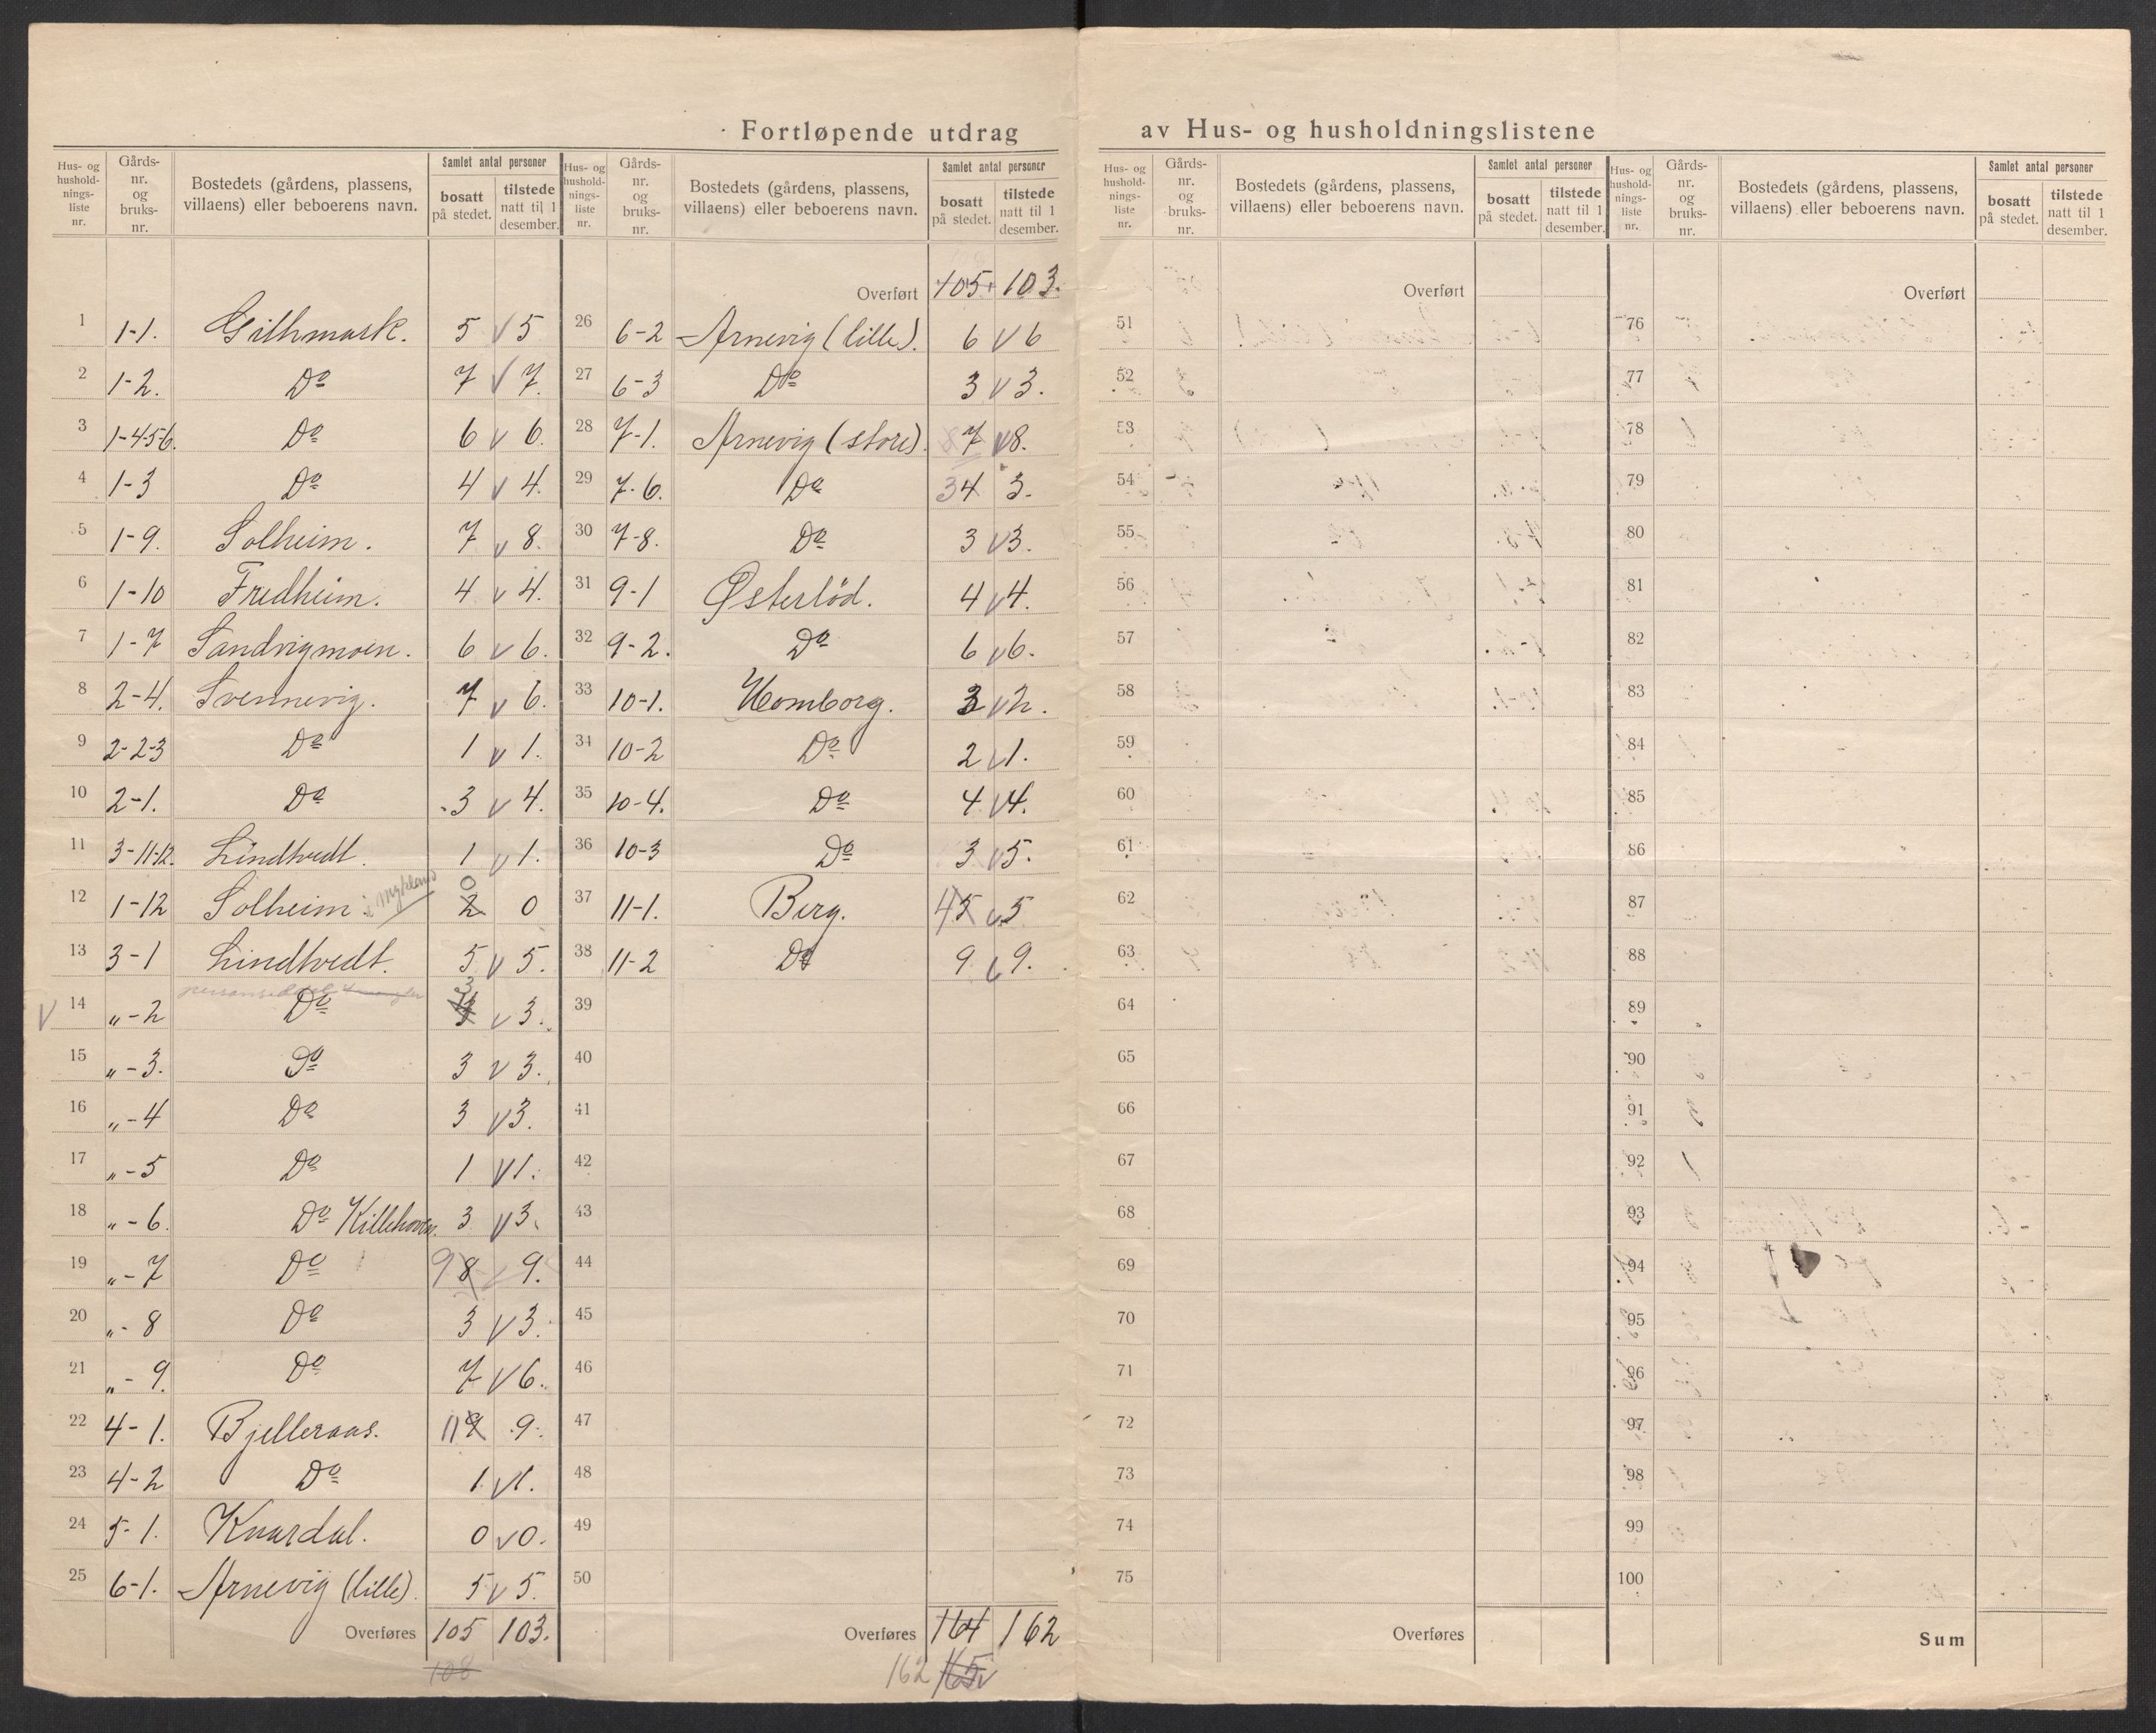 Fortløpende utdrag av Hus- og husholdningslistene
Hus- og husholdningsliste nr. | Gårds-nr. og bruks-nr. | Bostedets (gårdens, plassens, villaens) eller beboerens navn. | Samlet antal personer | bosatt på stedet. | tilstede natt til 1 desember.
1 1-1. Gilhmark. 5 v 5
2 1-2. Do 7 v 7.
3 1-4-5-6. Do 6 v 6.
4 1-3 Do 4 v 4.
5 1-9. Solheim. 7 v 8.
6 1-10 Fredheim. 4 v 4.
7 1-7 Sandvigmoen. 6 v 6.
8 2-4. Svennevig. 7 v 6.
9 2-2-3 Do 1 v 1.
10 2-1. Do 3 v 4.
11 3-11-12. Lindtvedt. 1 v 1.
12 1-12 Solheim. i Nykland 2 0 0
13 3-1 Lindtvedt. 5 v 5.
v 14 „-2 Do 3 v 3.
15 „-3. Do 3 v 3.
16 „-4 Do 3 v 3.
17 „-5 Do 1 v 1.
18 „-6. Do Killehaven. 3 v 3.
19 „-7 Do 9 8 9.
20 „-8 Do 3 v 3.
21 „-9. Do 7 v 6.
22 4-1. Bjelleraas. 11 9 9.
23 4-2 Do 1 v 1.
24 5-1. Knardal. 0 v 0.
25 6-1. Arnevig (lille). 5 v 5.
Overføres 105 103.
108
Hus- og husholdningsliste nr. | Gårds-nr. og bruks-nr. | Bostedets (gårdens, plassens, villaens) eller beboerens navn. | Samlet antal personer | bosatt på stedet. | tilstede natt til 1 desember.
Overført 105 103.
26 6-2 Arnevig (lille). 6 v 6
27 6-3 Do 3 v 3.
28 7-1. Arnevig (store). 8 7 v 8.
29 7-6. Do 3 4 3.
30 7-8. Do 3 v 3.
31 9-1 Østerlød. 4 v 4.
32 9-2. Do 6 v 6.
33 10-1. Homborg. 3 v 2.
34 10-2 Do 2 v 1.
35 10-4. Do 4 v 4.
36 10-3 Do 3 v 5.
37 11-1. Berg. 4 5 v 5
38 11-2 Do 9 v 9.
39
40
41
42
43
44
45
46
47
48
49
50
Overføres 164 162
162 165 v
Hus- og husholdningsliste nr. | Gårds-nr. og bruks-nr. | Bostedets (gårdens, plassens, villaens) eller beboerens navn. | Samlet antal personer | bosatt på stedet. | tilstede natt til 1 desember.
Overført
51
52
53
54
55
56
57
58
59
60
61
62
63
64
65
66
67
68
69
70
71
72
73
74
75
Overføres
Hus- og husholdningsliste nr. | Gårds-nr. og bruks-nr. | Bostedets (gårdens, plassens, villaens) eller beboerens navn. | Samlet antal personer | bosatt på stedet. | tilstede natt til 1 desember.
Overført
76
77
78
79
80
81
82
83
84
85
86
87
88
89
90
91
92
93
94
95
96
97
98
99
100
Sum